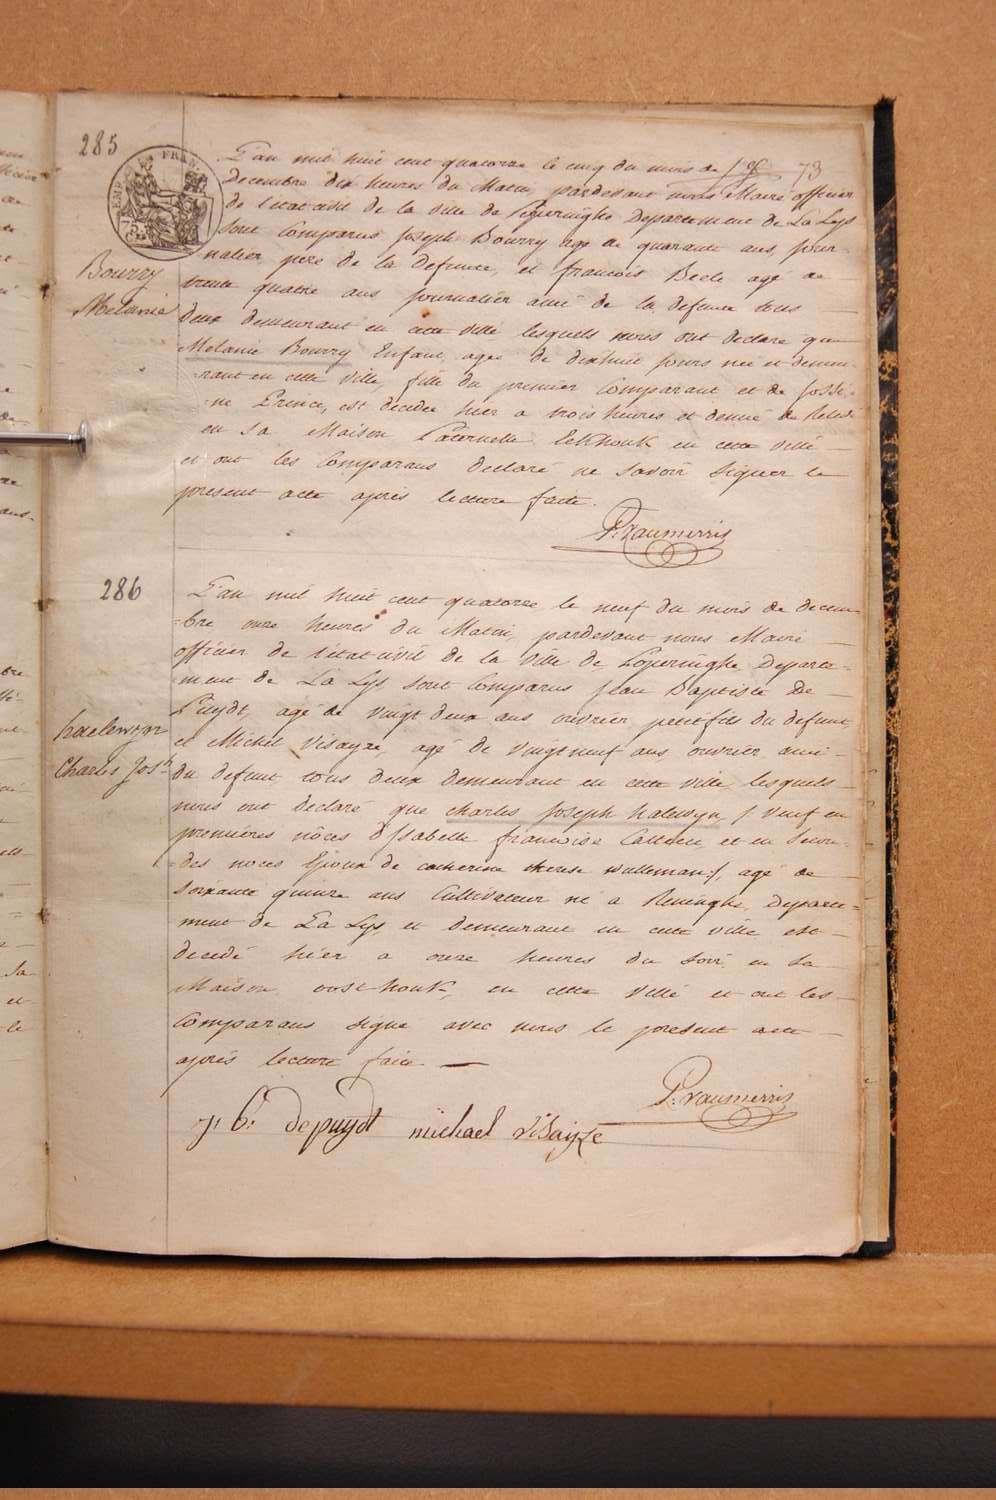 285
EMPIRE FRAN
73
L'an mil huit cent quatorze le cinq du mois de
Decembre dix heures du Matin, pardevant nous Maire officier
de l'etat civil de la ville de Poperinghe Departement de La Lys
sont Comparus Joseph Bourry age de quarante ans, jour-
-nalier, pere de la defunte, et francois Beele agé de
trente quatre ans journalier ami de la defunte tous
deux demeurant en cette ville lesquels nous ont declaré que
Bourry
Melanie
Melanie Bourry Enfant, agée de dixhuit jours née et demeu-
-rant en cette ville, fille du premier Comparant et de Josse-
-ne Prince, est decedée hier a trois heures et demie de Relevée
en sa Maison Paternelle Eekhouk en cette ville
et ont les Comparans declaré ne savoir signer le
present acte aprés lecture faite.
P. Vaumerris
286
L'an mil huit cent quatorze le neuf du mois de decem-
-bre onze heures du Matin, pardevant nous Maire
officier de l'etat civil de la Ville de Poperinghe Departe-
-ment de La Lys, sont Comparus Jean Baptiste De-
Puydt, agé de vingt deux ans ouvrier, petit fils du defunt,
et Michel Visayze, agé de vingt neuf ans, ouvrier ami
haelewyn
Charles Josh
du defunt, tous deux demeurant en cette ville lesquels
nous ont declaré que charles Joseph halewyn /: Veuf en
premières nôces d'Isabelle francoise Cattieu et en Secon-
-des noces Epoux de catherine therese walleman :/, agé de
soixante quinze ans Cultivateur né a Reninghe, Departe-
ment de La Lys, et demeurant en cette ville est
decedé hier a onze heures du Soir en sa
Maison oosthouk, en cette Ville et ont les
Comparans signé avec nous le present acte
aprés lecture faite
P. Vaumerris
J: b: depuydt michael Visayze